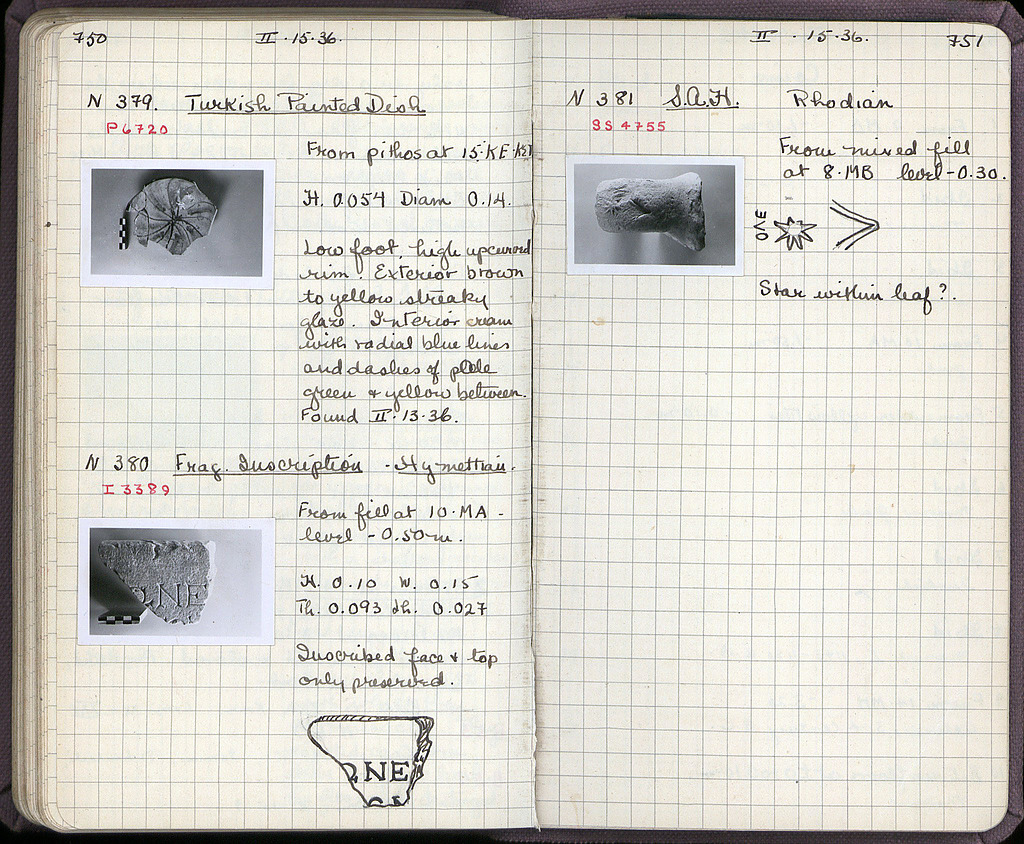 750
II · 15 · 36.
N 379. Turkish Painted Dish
P 6720
From pithos at 15·KE-
H. 0.054 Diam 0.14.
Low foot, high upcurved
rim. Exterior brown
to yellow streaky
glaze. Interior cream
with radial blue lines
and dashes of pale
green & yellow between.
Found II·13·36.
N 380 Frag. Inscription - Hymettian.
I 3389
From fill at 10·MA -
level - 0.50m.
H. 0.10 W. 0.15
Th. 0.093 Lh. 0.027
Inscribed face & top
only preserved.
NE
II · 15·36.
751
N 381 S.A.H. Rhodian
SS 4755
From mixed fill
at 8·MB level -0.30.
Star within leaf?.